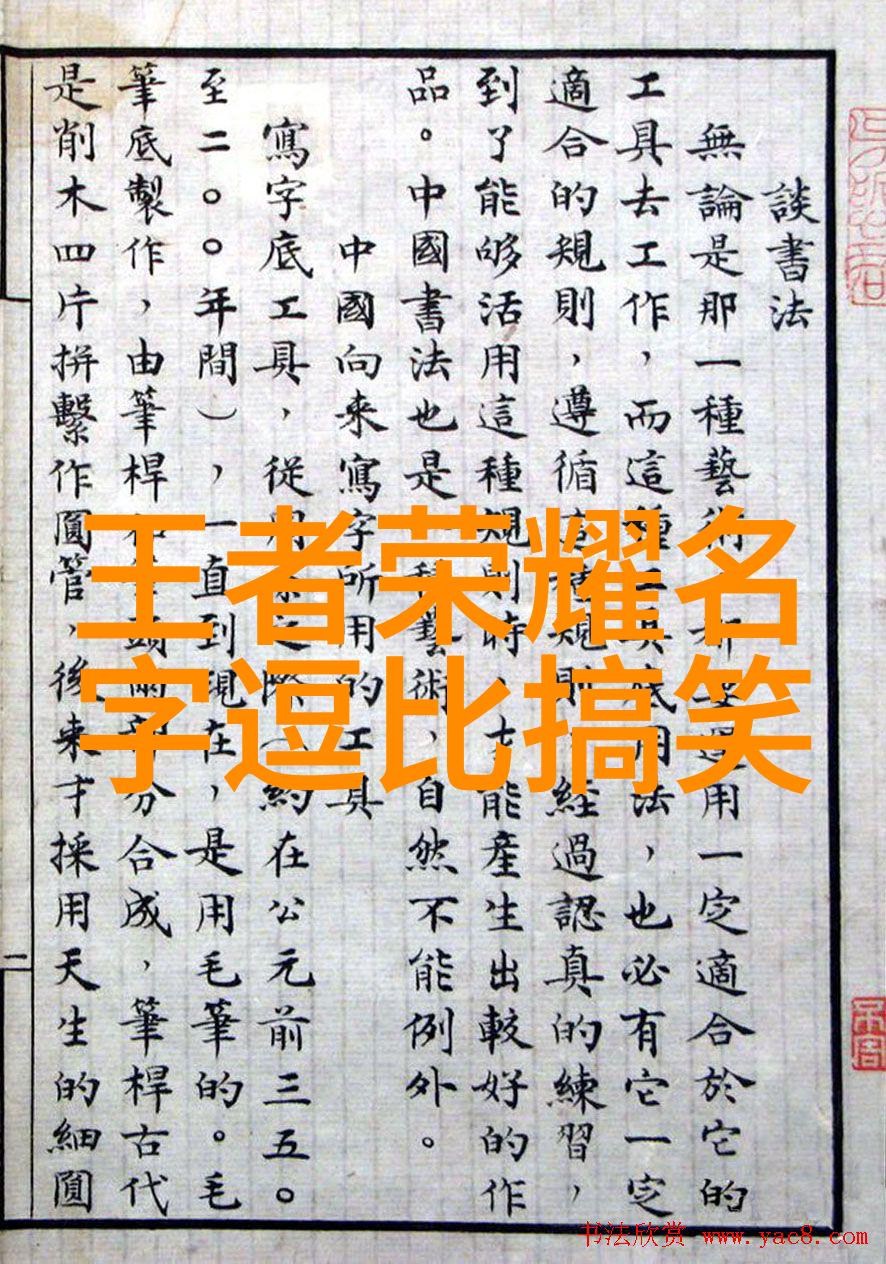 談書法
無論是那一種藝術用一定適合於它的
工具去工作，而這種工具底用法，也必有它一定
適合的規則，遵循這種規則，經過認真的練習，
到了能够活用這種規則時，才能產生出較好的作
品。中國書法也是一種藝術，自然不能例外。
中國向来寫字所用的工具
寫字底工具，從之際（約在公元前三五〇
至二〇〇年間），一直到現在，是用毛筆的。毛
筆底製作，由筆桿和筆頭兩部分合成，筆桿古代
是削木四片拼繫作圓管，後来才採用天生的細圓
二
王者荣耀名
字逗比搞笑
书法欣赏 www.yac8.com